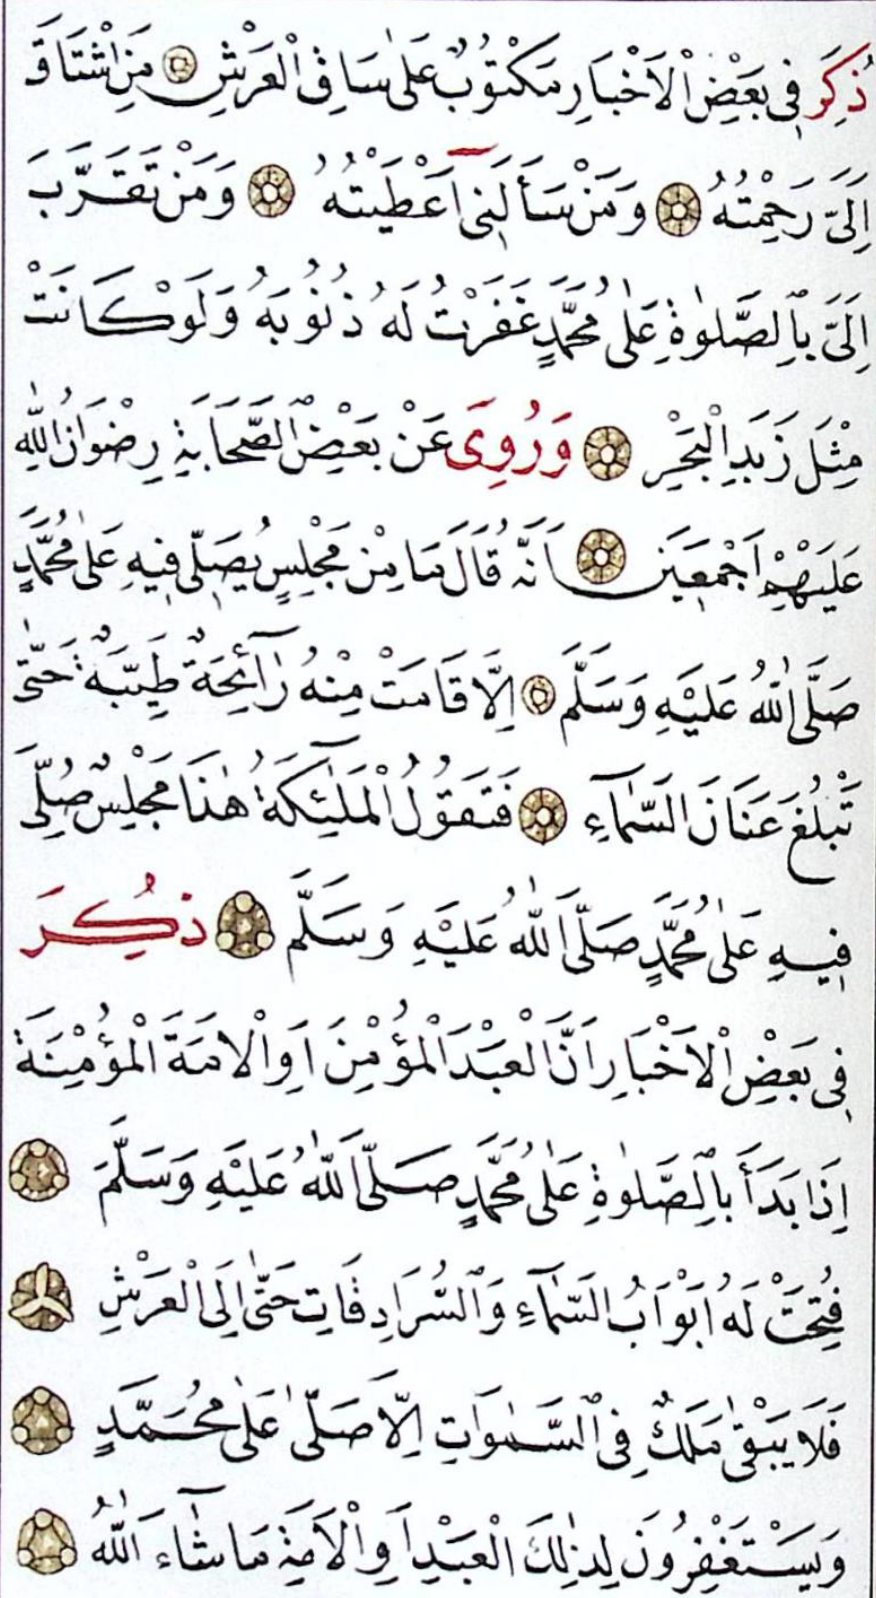 ذُكِرَ فِى بَعْضِ الْاَخْبَارِ مَكْتُوبٌ عَلٰى سَاقِ الْعَرْشِ مَنِ اشْتَاقَ
اِلَىَّ رَحِمْتُهُ وَمَنْ سَأَلَنِى اَعْطَيْتُهُ وَمَنْ تَقَرَّبَ
اِلَىَّ بِالصَّلٰوةِ عَلٰى مُحَمَّدٍ غَفَرْتُ لَهُ ذُنُوبَهُ وَلَوْ كَانَتْ
مِثْلَ زَبَدِ الْبَحْرِ وَرُوِىَ عَنْ بَعْضِ الصَّحَابَةِ رِضْوَانُ اللّٰهِ
عَلَيْهِمْ اَجْمَعِينَ اَنَّهُ قَالَ مَا مِنْ مَجْلِسٍ يُصَلّٰى فِيهِ عَلٰى مُحَمَّدٍ
صَلَّى اللّٰهُ عَلَيْهِ وَسَلَّمَ اِلَّا قَامَتْ مِنْهُ رَآئِحَةٌ طَيِّبَةٌ حَتّٰى
تَبْلُغَ عَنَانَ السَّمَآءِ فَتَقُولُ الْمَلٰٓئِكَةُ هٰذَا مَجْلِسٌ صُلِّىَ
فِيهِ عَلٰى مُحَمَّدٍ صَلَّى اللّٰهُ عَلَيْهِ وَسَلَّمَ ذُكِرَ
فِى بَعْضِ الْاَخْبَارِ اَنَّ الْعَبْدَ الْمُؤْمِنَ اَوِ الْاَمَةَ الْمُؤْمِنَةَ
اِذَا بَدَأَ بِالصَّلٰوةِ عَلٰى مُحَمَّدٍ صَلَّى اللّٰهُ عَلَيْهِ وَسَلَّمَ
فُتِحَتْ لَهُ اَبْوَابُ السَّمَآءِ وَالسُّرَادِقَاتِ حَتّٰى اِلَى الْعَرْشِ
فَلَا يَبْقٰى مَلَكٌ فِى السَّمٰوَاتِ اِلَّا صَلّٰى عَلٰى مُحَمَّدٍ
وَيَسْتَغْفِرُونَ لِذٰلِكَ الْعَبْدِ اَوِ الْاَمَةِ مَا شَآءَ اللّٰهُ